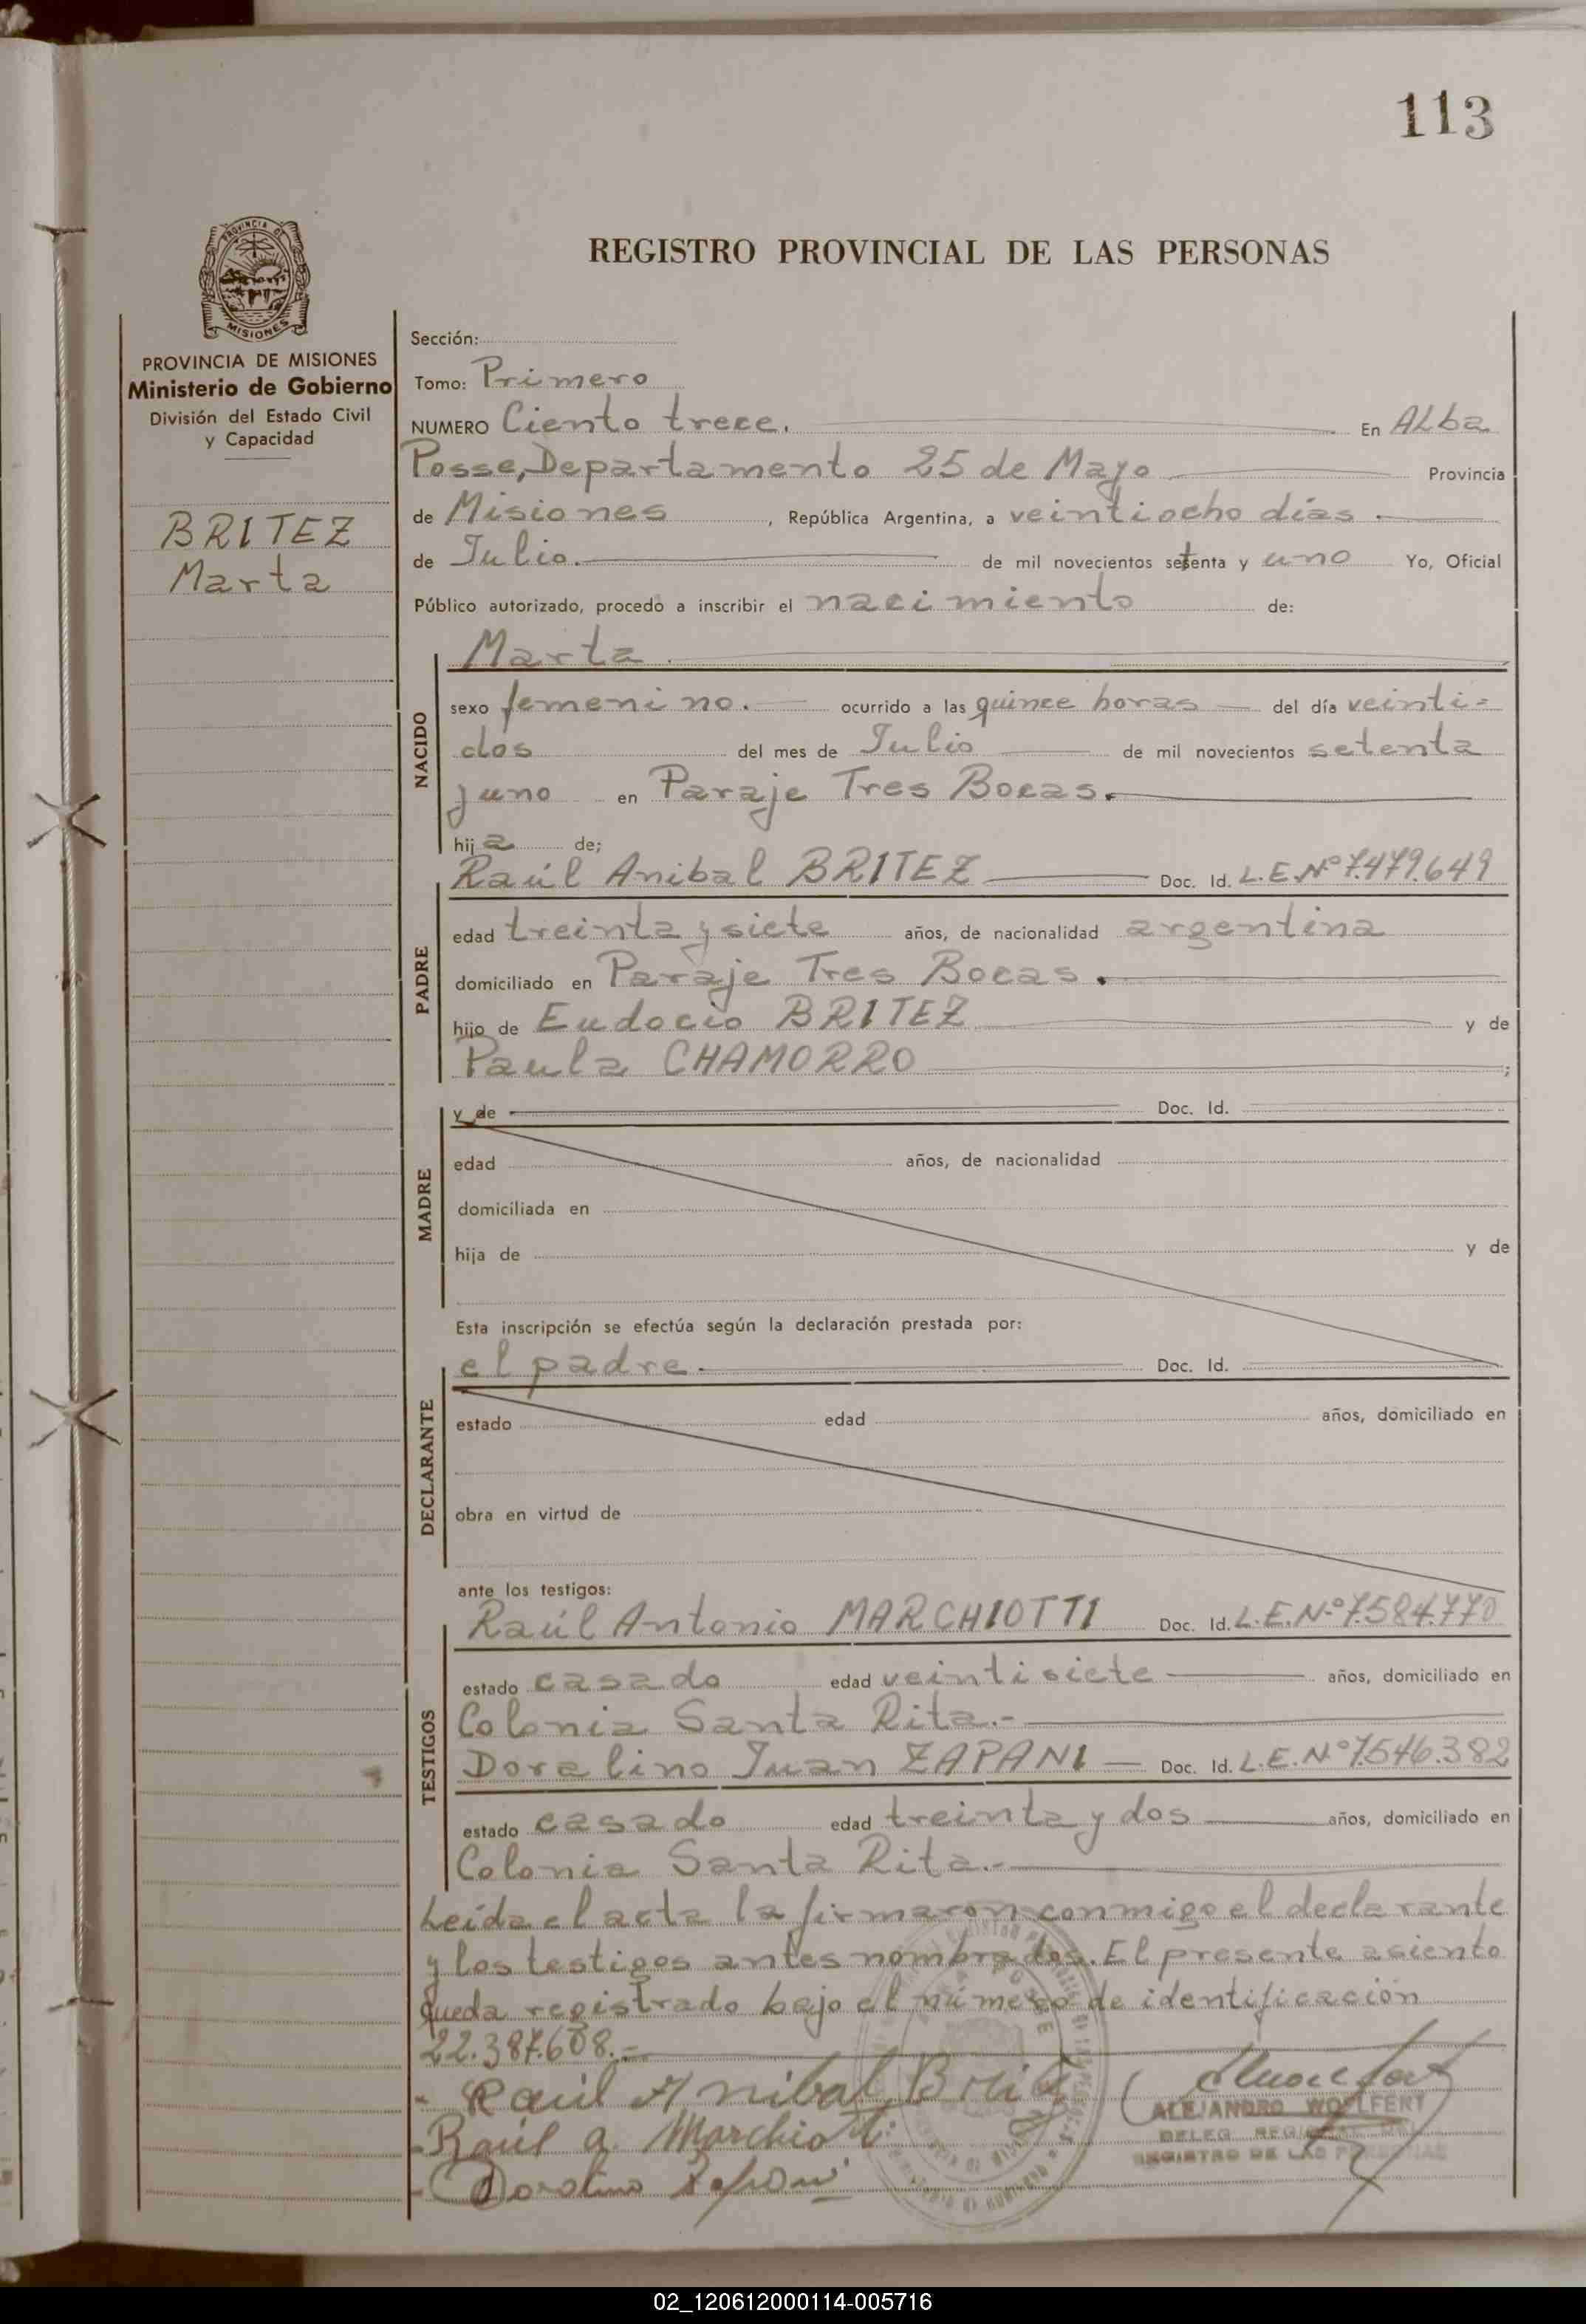 113
PROVINCIA DE MISIONES
MISIONES
PROVINCIA DE MISIONES
Ministerio de Gobierno
División del Estado Civil
y Capacidad
BRITEZ
Marta
REGISTRO PROVINCIAL DE LAS PERSONAS
Sección:
Tomo: Primero
NUMERO Ciento trece. En ALba
Posse, Departamento 25 de Mayo Provincia
de Misiones, República Argentina, a veintiocho días
de Julio. de mil novecientos setenta y uno Yo, Oficial
Público autorizado, procedo a inscribir el nacimiento de:
Marta.
NACIDO
sexo femenino. ocurrido a las quince horas del día veinti=
dos del mes de Julio de mil novecientos setenta
y uno en Paraje Tres Bocas.
hija de;
Raúl Anibal BRITEZ Doc. Id. L.E.Nº 7.479.649
PADRE
edad treinta y siete años, de nacionalidad argentina
domiciliado en Paraje Tres Bocas.
hijo de Eudocio BRITEZ y de
Paula CHAMORRO ;
MADRE
y de Doc. Id.
edad años, de nacionalidad
domiciliada en
hija de y de
Esta inscripción se efectúa según la declaración prestada por:
el padre. Doc. Id.
DECLARANTE
estado edad años, domiciliado en
obra en virtud de
ante los testigos:
Raúl Antonio MARCHIOTTI Doc. Id. L.E.Nº 7.584.770
TESTIGOS
estado casado edad veintisiete años, domiciliado en
Colonia Santa Rita.-
Doralino Juan ZAPANI Doc. Id. L.E.Nº 7.546.382
estado casado edad treinta y dos años, domiciliado en
Colonia Santa Rita.-
Leída el acta la firmaron conmigo el declarante
y los testigos antes nombrados. El presente asiento
queda registrado bajo el número de identificación
22.387.608.=
Raúl Anibal Britez
Raúl A. Marchiotti
Doralino Zapani
ALEJANDRO WOLFENT
DELEG. REG
REGISTRO DE LAS PERSONAS
02_120612000114-005716